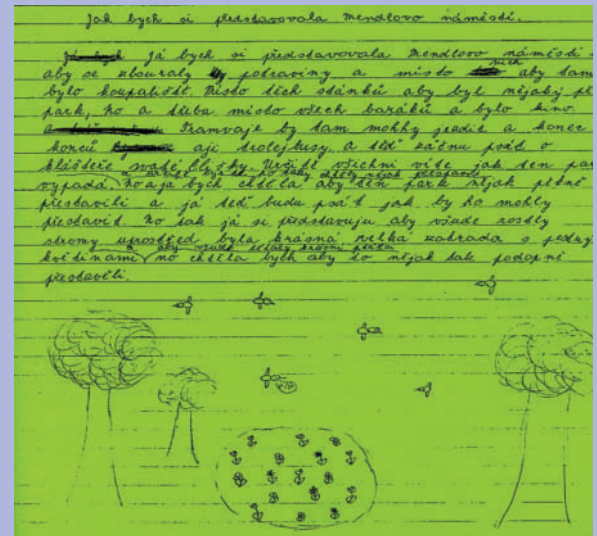 Jak bych si představovala Mendlovo náměstí.
Já bych si představovala Mendlovo náměstí
aby se zbouraly potraviny a místo nich aby tam
bylo koupaliště. Místo těch stánků aby byl nějaký
park, no a třeba místo všech baráků a bylo kino.
Tramvaje by tam mohly jezdit a konec
konců aji trolejbusy. a teď začnu psát o
klášteře svaté Elišky. Určitě všichni víte jak ten
vypadá. No a já bych chtěla aby ten park nějak pěkně
přestavili a já teď budu psát jak by ho mohly
přestavit. No tak já si představuju aby všude rostly
stromy uprostřed byla krásná velká zahrada s
květinami a aby všude létaly krásní ptáčci no chtěla bych aby to nějak tak podopně
přestavěli.